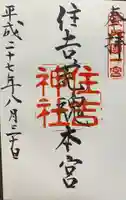 奉拝
住吉荒魂本宮
住吉
神社
平成二十七年八月三十日